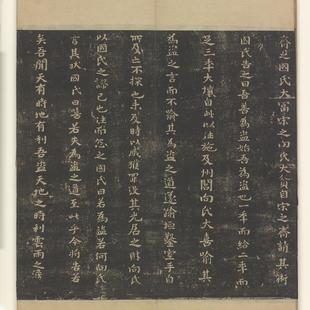 齊之國氏大富宋之向氏大貧自宋之齊請其術
國氏告之曰吾善為盜始吾為盜也一年而給二年而
足三年大壤自此以往施及州閭向氏大喜喻其
為盜之言而不喻其為盜之道遂踰垣鑿室手目
所及亡不探也未及時以臧獲罪沒其先居之財向氏
以國氏之謬己也往而怨之國氏曰若為盜若何向氏
言其狀國氏曰嘻若失為盜之道至此乎今將告若
矣吾聞天有時地有利吾盜天地之時利雲雨之滂